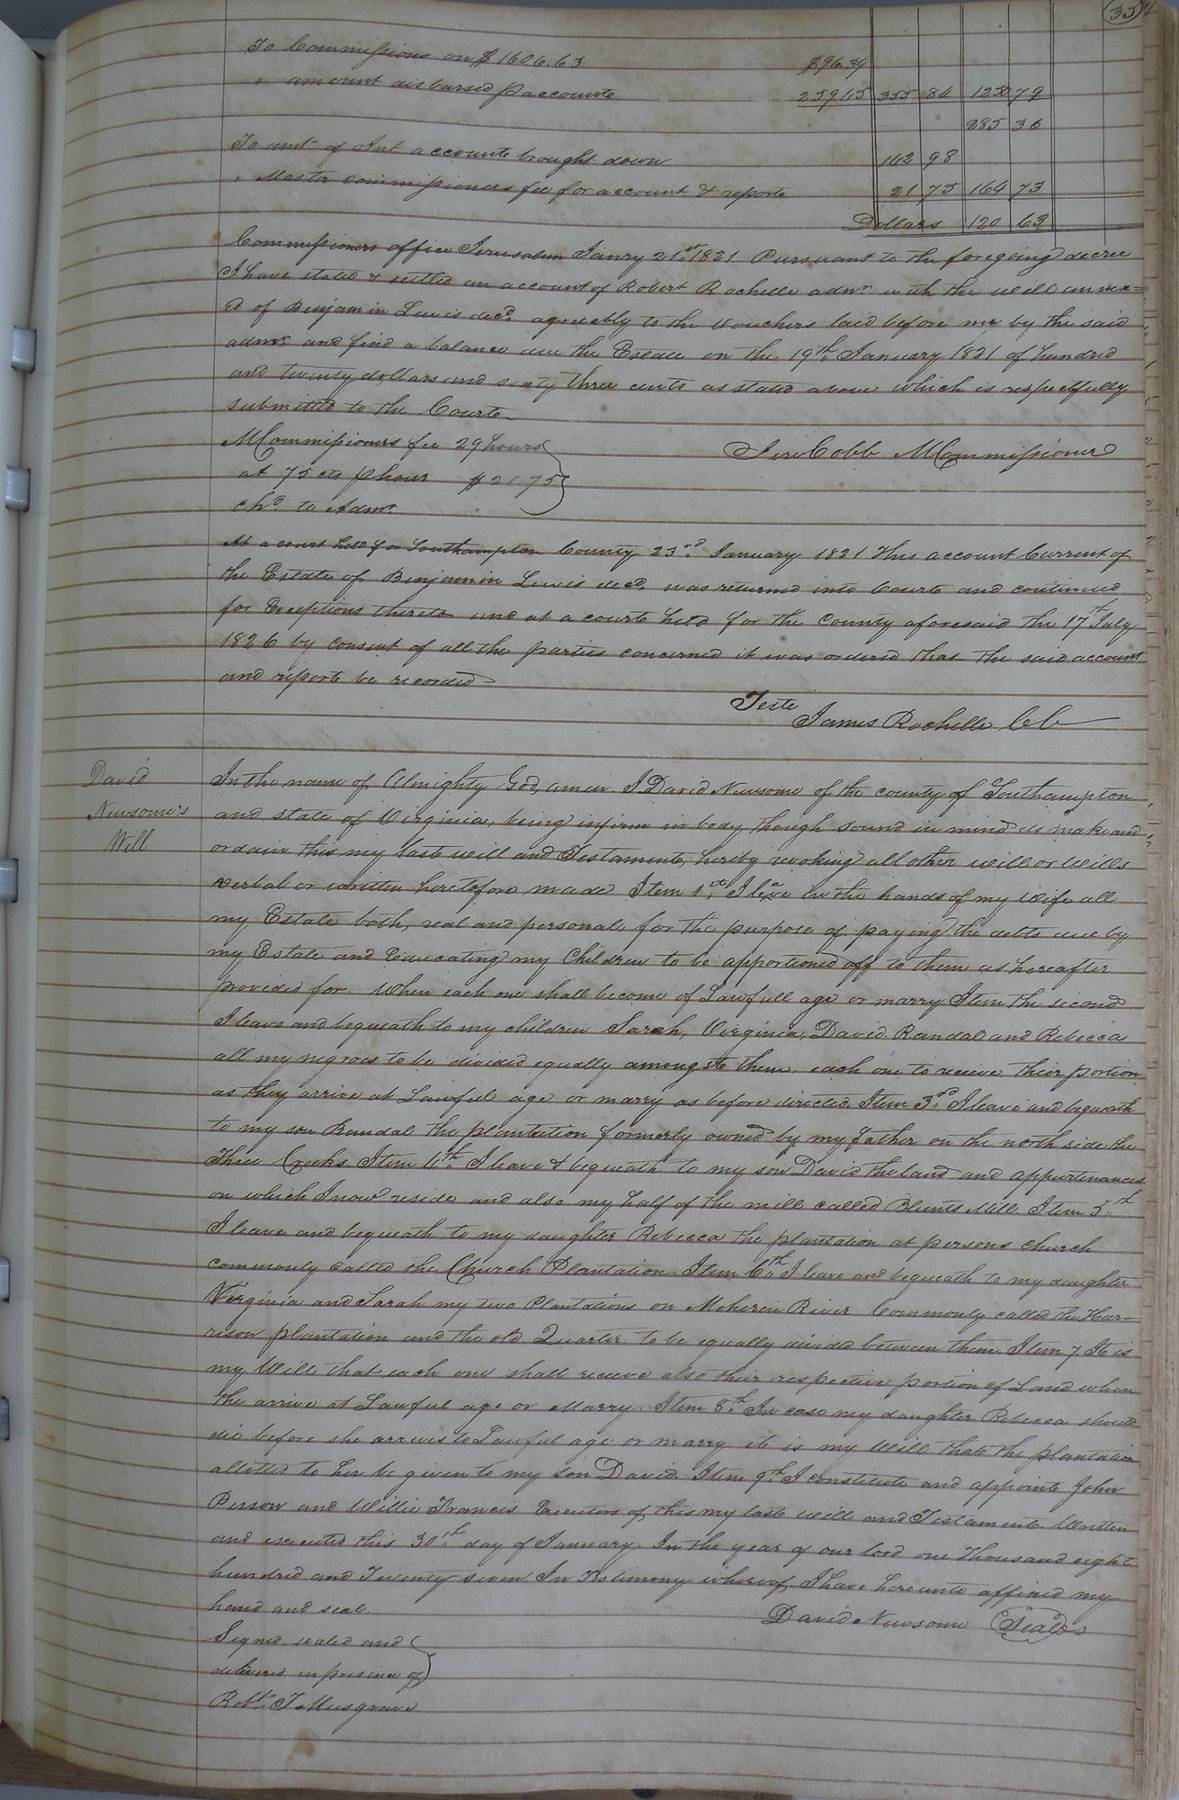 351
To Commissions on $1606.63 $96.39
" amount disbursed p accounts 259.45 355 84 1250 79
285 36
To amt of Int accounts brought down 142 98
" Master commissioners fee for account & reporte 21 75 164 73
Dollars 120 63
Commissioners office Jerusalem Janry 21st 1821 Pursuant to the foregoing decree
I have stated & settled an account of Robert Rochelle admr with the will annex=
ed of Benjamin Lewis decd agreeably to the vouchers laid before me by the said
admr and find a balance due the Estate on the 19th January 1821 of hundred
and twenty dollars and sixty three cents as stated above which is respectfully
submitted to the Courte
MCommissioners fee 29 hours
at 75 cts p hour $21.75
chd to Admr
Jere Cobb MCommissioner
At a court held for Southampton County 23rd January 1821 This account Current of
the Estate of Benjamin Lewis decd was returned into Courte and continued
for Exceptions thereto and at a courte held for the County aforesaid the 17th July
1826 by consent of all the parties concerned it was ordered that the said account
and reporte be recorded
Teste
James Rochelle CC
David
Newsome's
Will
In the name of Almighty God, amen I David Newsome of the county of Southampton
and state of Virginia, being infirm in body though sound in mind do make and
ordain this my laste will and Testamente, hereby revoking all other will or wills
verbal or written heretofore made Item 1st I leave in the hands of my wife all
my Estate both, real and personal, for the purpose of paying the debts due by
my Estate and Educating my Children to be apportioned off to them as hereafter
provided for. When each one shall become of Lawfull age or marry Item the second
I leave and bequeath to my children Sarah, Virginia, David Randal and Rebecca
all my negroes to be divided equally amongste them, each one to receive their portion
as they arrive at Lawful age or marry as before directed. Item 3rd I leave and bequeath
to my son Randal the plantation formerly owned by my father on the north side the
Three Creeks Item 4th I leave & bequeath to my son David the land and appurtenances
on which I now reside and also my half of the mill called Blunts Mill Item 5th
I leave and bequeath to my daughter Rebecca the plantation at persons church
commonly called the Church Plantation Item 6th I leave and bequeath to my daughter
Virginia and Sarah my two Plantations on Meherrin River Commonly called the Har=
rison plantation and the old Quarter to be equally divided between them Item 7 It is
my Will that each one shall receive also their respective portion of Land when
the arrive at Lawful age or Marry Item 8th In case my daughter Rebecca should
die before she arrives to Lawful age or marry it is my Will that the plantation
allotted to her be given to my son David Item 9th I constitute and appointe John
Person and Willie Francis Executors of this my laste will and Testamente. Written
and executed this 30th day of January In the year of our lord one thousand eight
hundred and Twenty seven In Testimony whereof, I have hereunto affixed my
hand and seal
David Newsome (Seal)
Signed, sealed and
delivered in presence of
Robt T Musgrave